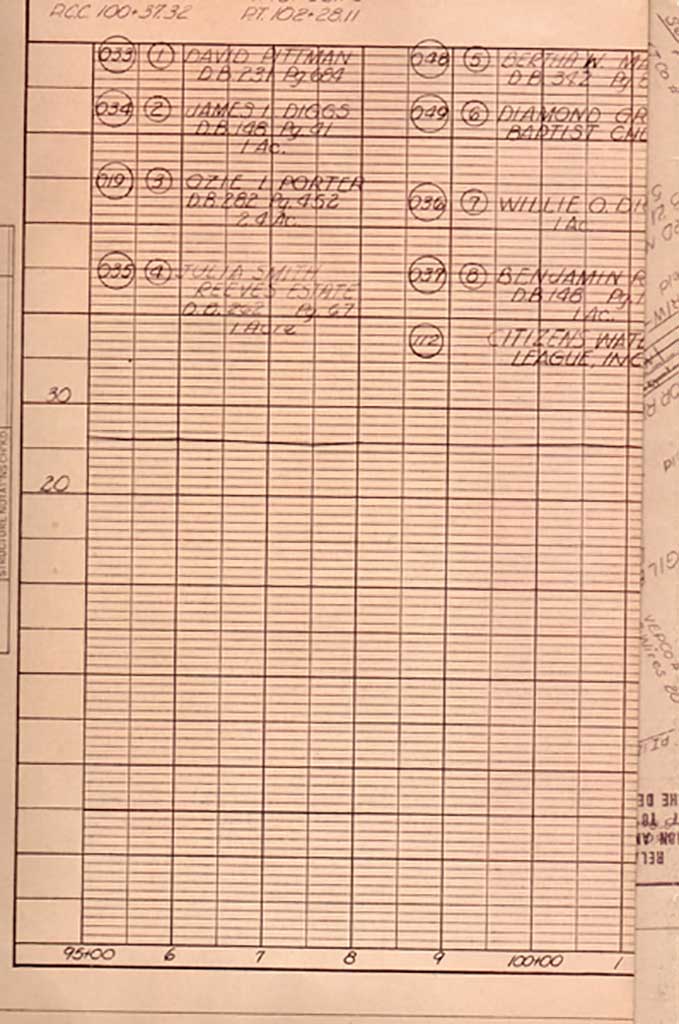 P.C.C. 100+37.32 P.T. 102+28.11
033 1 DAVID PITTMAN
D.B. 231 Pg 684
034 2 JAMES L. DIGGS
D.B. 148 Pg. 41
1 Ac.
019 3 OZIE L. PORTER
D.B. 282 Pg. 452
2.4 Ac.
035 4 JULIA SMITH
REEVES ESTATE
Pg 67
1 Acre
048 5 BERTHA W. MA
D.B. 342 Pg
049 6 DIAMOND GR
BAPTIST CHU
036 7 WILLIE O. DI
1 Ac.
037 8 BENJAMIN R
D.B. 148 Pg. 1
1 Ac.
112 CITIZENS WAT
LEAGUE, INC.
30
20
95+00 6 7 8 9 100+00 1
STRUCTURE NOTAT'NS CH'KD
VEPCO
Wires